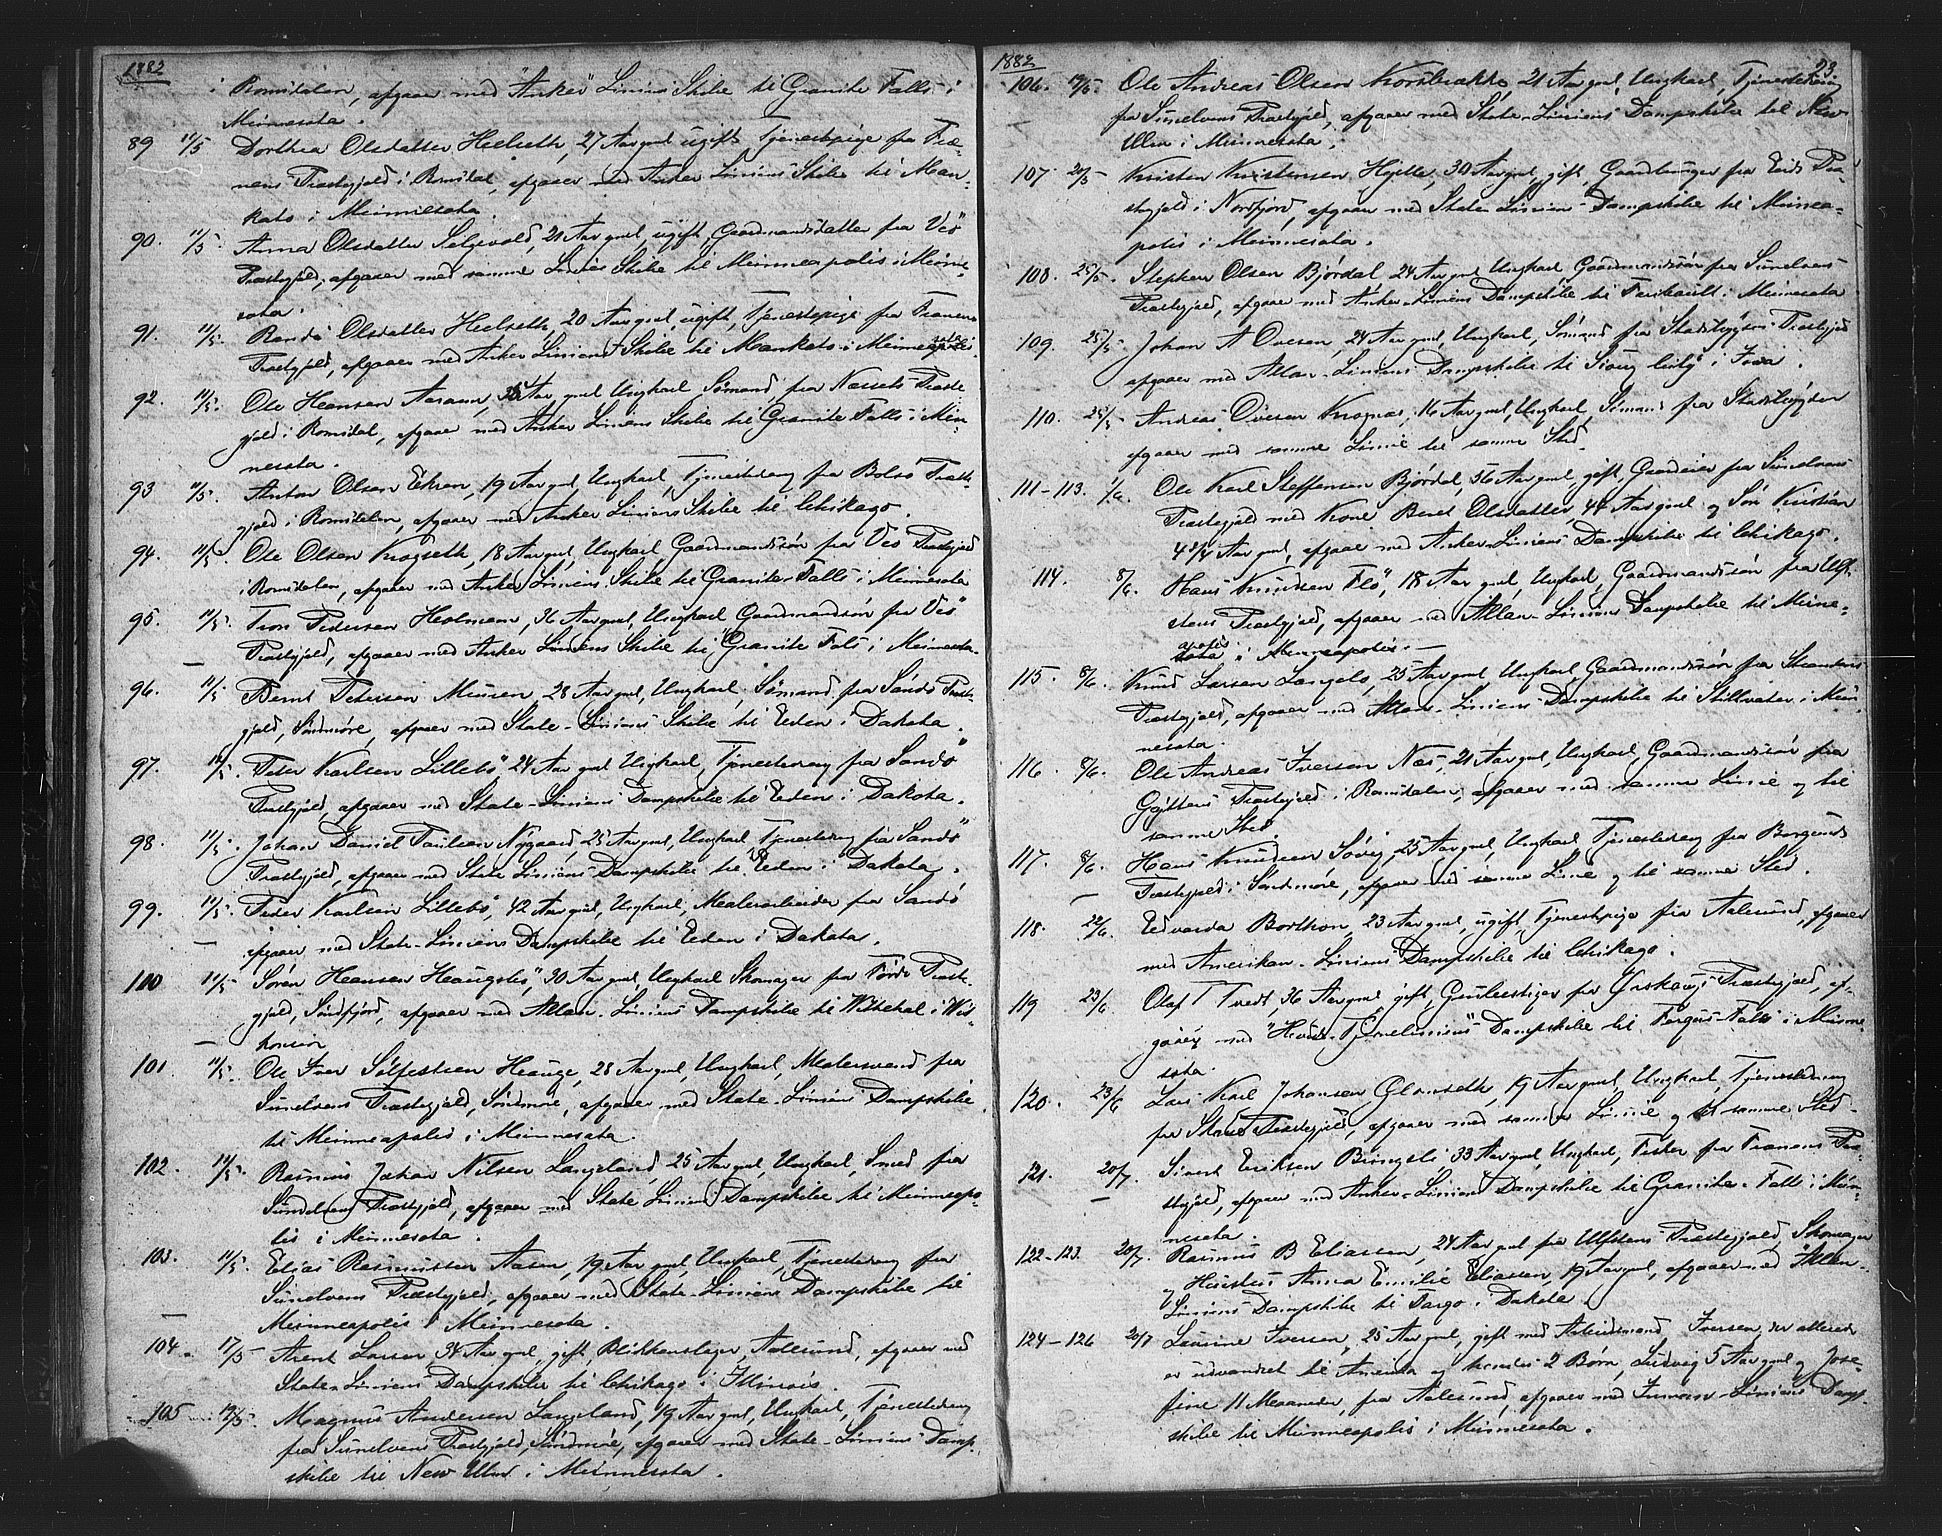 1882
i Romsdalen, afgaaer med "Anker" Liniens Skibe til Granite Falls i
Minnesota.
89 11/5 Dorthea Olsdatter Helseth, 27 Aar gml ugift Tjenestepige fra Træ-
nens Præstegjeld i Romsdal, afgaaer med Anker Liniens Skibe til Man-
kato i Minnesota.
90. 11/5. Anna Olsdatter Selgevold, 21 Aar gml, ugift, Gaardmandsdatter fra Veø
Præstegjeld, afgaaer med samme Linies Skibe til Minneapolis i Minne-
sota.
91. 11/5. Randi Olsdatter Helseth, 20 Aar gml, ugift, Tjenestepige fra Tranens
Præstegjeld, afgaaer med Anker Liniens Skibe til Mankato i Minnesota.
92. 11/5. Ole Hansen Aaram, Aar gml Ungkarl Sømand fra Nessets Præste-
gjeld i Romsdal, afgaaer med Anker Liniens Skibe til Granite Falls i Min-
nesota.
93 11/5. Anton Olsen Ekren, 19 Aar gml, Ungkarl, Tjenestedreng fra Bolsø Præste-
gjeld i Romsdalen, afgaaer med Anker Liniens Skibe til Chikago.
94. 11/5. Ole Olsen Krogseth, 18 Aar gml, Ungkarl Gaardmandssøn fra Veø Præstegjeld
i Romsdalen, afgaaer med Anker Liniens Skibe til Granite Falls i Minnesota
95. 11/5. Tron Pedersen Holmem, 36 Aar gml, Ungkarl Gaardmandssøn fra Veø
Præstegjeld, afgaaer med Anker Liniens Skibe til Granite Fals i Minnesota.
96. 11/5 Bernt Petersen Munsen, 28 Aar gml, Ungkarl, Sømand, fra Sandø Præste-
gjeld, Søndmøre, afgaaer med State-Liniens Skibe til Eden i Dakota.
97. 11/5. Peter Karlsen Lillebø, 24 Aar gml Ungkarl, Tjenestedreng fra Sandø
Præstegjeld, afgaaer med State-Liniens Dampskibe til Eden i Dakota.
98. 11/5. Johan Daniel Paulsen Nygaard 25 Aar gml, Ungkarl Tjenestedreng fra Sandø
Præstegjeld, afgaaer med State Liniens Dampskibe til Eden i Dakota.
99. 11/5. Peder Karlsen Lillebø, 42 Aar gml, Ungkarl, Malerarbeider fra Sandø
afgaaer med State-Liniens Dampskibe til Eden i Dakota.
100 11/5 Søren Hansen Haugsbø, 30 Aar gml, Ungkarl Skomager fra Førde Præste-
gjeld, Søndfjord, afgaaer med Allan-Liniens Dampskibe til Wittehal i Wis-
konsin
101. 11/5. Ole Iver Sølfestsen Hauge, 28 Aar gml, Ungkarl, Malersvend fra
Sunelvens Præstegjeld, Søndmøre, afgaaer med State-Liniens Dampskibe
til Minneapolis i Minnesota.
102. 11/5. Rasmus Johan Nilsen Langeland, 25 Aar gml, Ungkarl, Smed fra
Sunelvens Præstegjeld, afgaaer med State Liniens Dampskibe til Minneapo-
lis i Minnesota.
103. 11/5. Elias Rasmussen Aasen, 19 Aar gml, Ungkarl, Tjenestedreng fra
Sunelvens Præstegjeld, afgaaer med State-Liniens Dampskibe til
Minneapolis i Minnesota.
104. 17/5 Arent Larsen, 34 Aar gml, gift, Blikkenslager Aalesund, afgaaer med
State-Liniens Dampskibe til Chikago i Illinois.
105 19/5. Magnus Andersen Langeland, 19 Aar gml, Ungkarl, Tjenestedreng
fra Sunelvens Præstegjeld, Søndmøre, afgaaer med State-Liniens Damp-
skibe til New Ulm i Minnesota.
1882 23
106. 19/5. Ole Andreas Olsen Korsbrække, 21 Aar gml, Ungkarl, Tjenestedreng
fra Sunelvens Præstegjeld, afgaaer med State-Liniens Dampskibe til New
Ulm i Minnesota.
107 20/5 Kristen Kristensen Hjelle, 30 Aar gml, gift, Gaardbruger fra Eids Præ-
stegjeld i Nordfjord, afgaaer med State-Liniens Dampskibe til Minnea-
polis i Minnesota.
108. 25/5. Stephen Olsen Bjørdal, 24 Aar gml Ungkarl Gaardmandssøn fra Sunelvens
Præstegjeld, afgaaer med Anker-Liniens Dampskibe til Faribault i Minnesota
109. 25/5. Johan A Ovesen, 24 Aar gml, Ungkarl, Sømand fra Stadsbygdens Præstegjeld
afgaaer med Allan-Liniens Dampskibe til Sioug City i Iova.
110. 25/5 Andreas Ovesen Krognæs, 16 Aar gml, Ungkarl, Sømand fra Stadsbygden
afgaaer med samme Linie til samme Sted.
111-113. 1/6. Ole Karl Steffensen Bjørdal, 56 Aar gml, gift, Gaardeier fra Sunelvens
Præstegjeld med Kone Beret Olsdatter, 44 Aar gml og Søn Kristian
4 3/4 Aar gml, afgaaer med Anker-Liniens Dampskibe til Chikago.
114. 8/6. Hans Knudsen Flø, 18 Aar gml, Ungkarl, Gaardmandssøn fra Ulf-
stens Præstegjeld, afgaaer med Allan-Liniens Dampskibe til Minne-
apolis i Minneapolis.
115. 8/6. Knud Larsen Langelo, 25 Aar gml Ungkarl, Gaardmandssøn fra Strandens
Præstegjeld, afgaaer med Allan-Liniens Dampskibe til Stillwater i Min-
nesota.
116 8/6. Ole Andreas Iversen Næs, 21 Aar gml, Ungkarl, Gaardmandssøn fra
Gryttens Præstegjeld i Romsdalen, afgaaer med samme Linie og til
samme Sted.
117. 8/6. Hans Knudsen Søvig, 25 Aar gml, Ungkarl Tjenestedreng fra Borgunds
Præstegjeld i Søndmøre, afgaaer med samme Linie og til samme Sted.
118. 22/6. Edvarda Borthen, 23 Aar gml, ugift, Tjenestepige fra Aalesund, afgaaer
med Amerikan-Liniens Dampskibe til Chikago.
119 23/6 Olaf T Tvedt, 36 Aar gml gift, Gjulestiger fra Ørskougs Præstegjeld, af-
gaaer med "Hvide-Stjernelinien" Dampskibe til Fergus Falls i Minne-
sota.
120. 23/6 Lars Karl Johansen Glomseth, 19 Aar gml, Ungkarl, Tjenestedreng
fra Skaue Præstegjeld, afgaaer med samme Linie og til samme Sted.
121. 20/7. Sivert Eriksen Bringsli 33 Aar gml, Ungkarl, Fisker fra Franens Præ-
stegjeld, afgaaer med Anker-Liniens Dampskibe til Granite-Falls i Min-
nesota.
122-123. 20/7. Rasmus B Eliassen, 24 Aar gml fra Ulfstens Præstegjeld, Skomager
og Hustru Anna Emilie Eliassen, 19 Aar gml, afgaaer med Allan-
Liniens Dampskibe til Fargo i Dakota.
124-126 20/7 Laurine Iversen, 25 Aar gml, gift med Arbeidsmand Iversen, der allerede
er udvandret til Amerika og hendes 2 Børn, Ludvig 5 Aar gml og Jose-
fine 11 Maaneder, fra Aalesund, afgaaer med Inman-Liniens Damp-
skibe til Minneapolis i Minnesota.